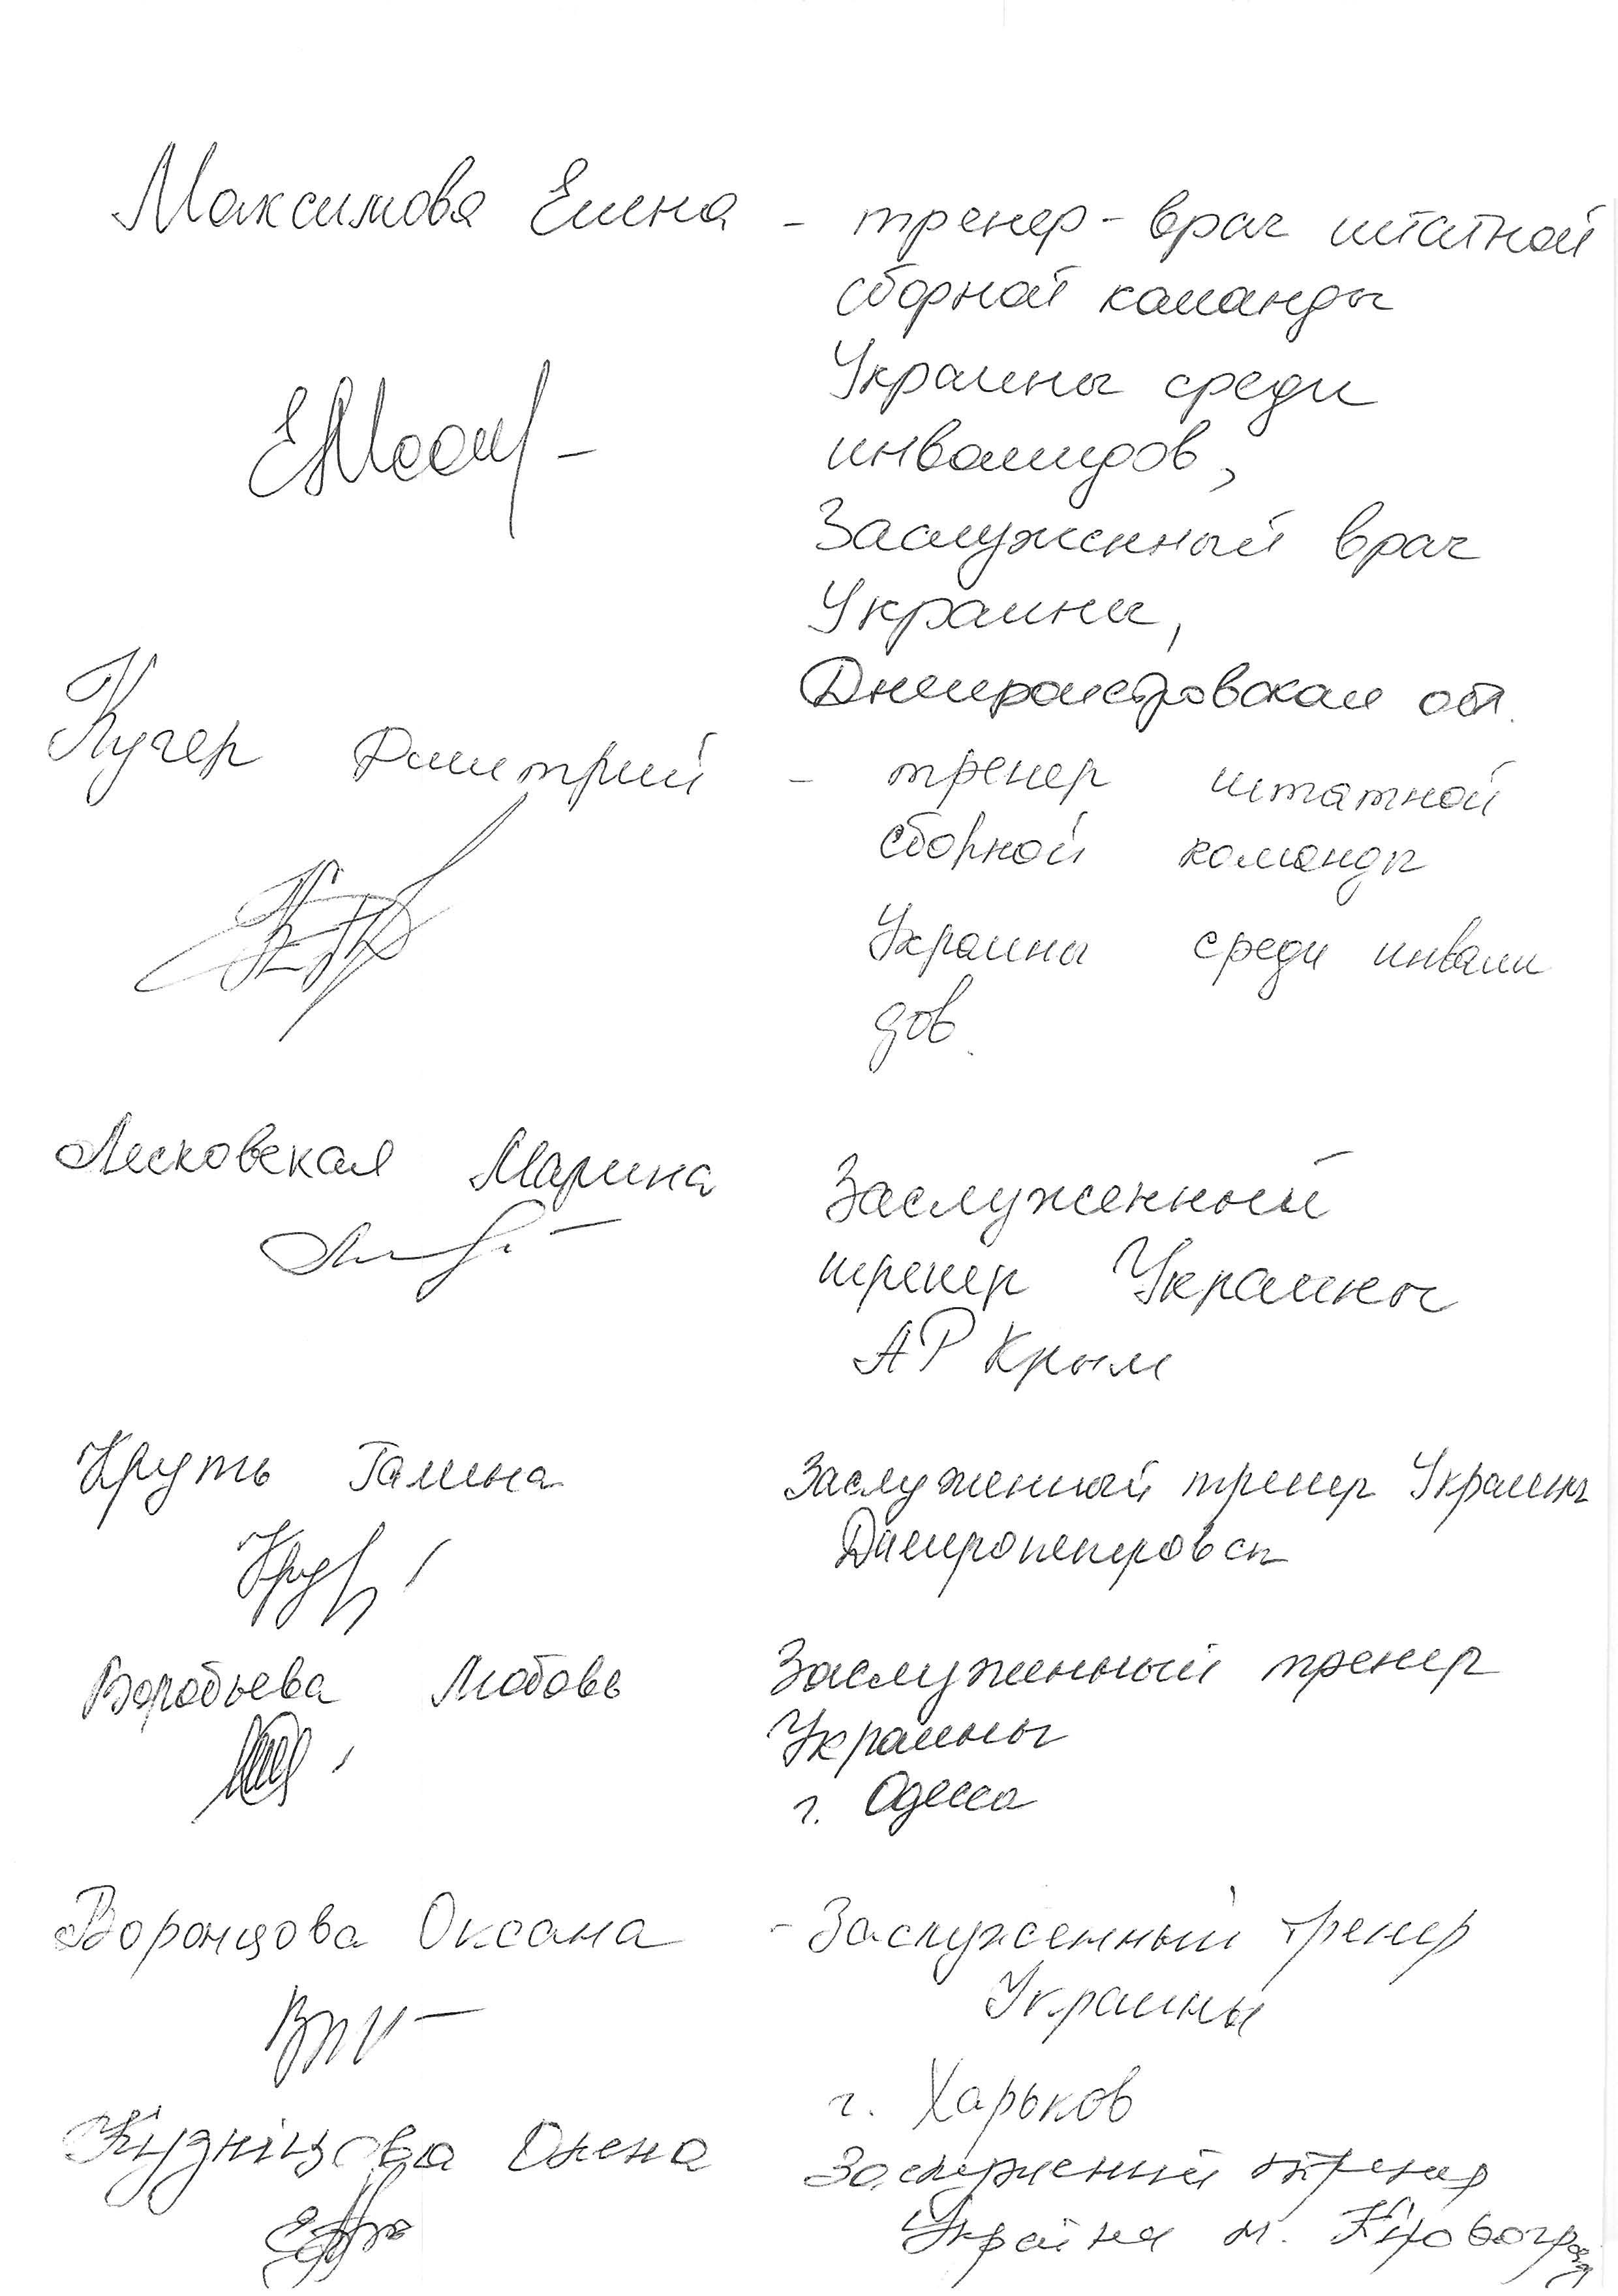 Максимова Елена - тренер-врач штатной
сборной команды
Украины среди
инвалидов,
Заслуженный врач
Украины,
Днепропетровская обл.
Кучер Дмитрий - тренер штатной
сборной команды
Украины среди инвали
дов.
Лисковская Марина
Заслуженный
тренер Украины
АР Крым
Круть Галина Заслуженный тренер Украины
Днепропетровск
Воробьева Любовь Заслуженный тренер
Украины
г. Одесса
Воронцова Оксана - Заслуженный тренер
Украины
г. Харьков
Кузніцова Олена Заслужений тренер
Україна м. Кіровоград